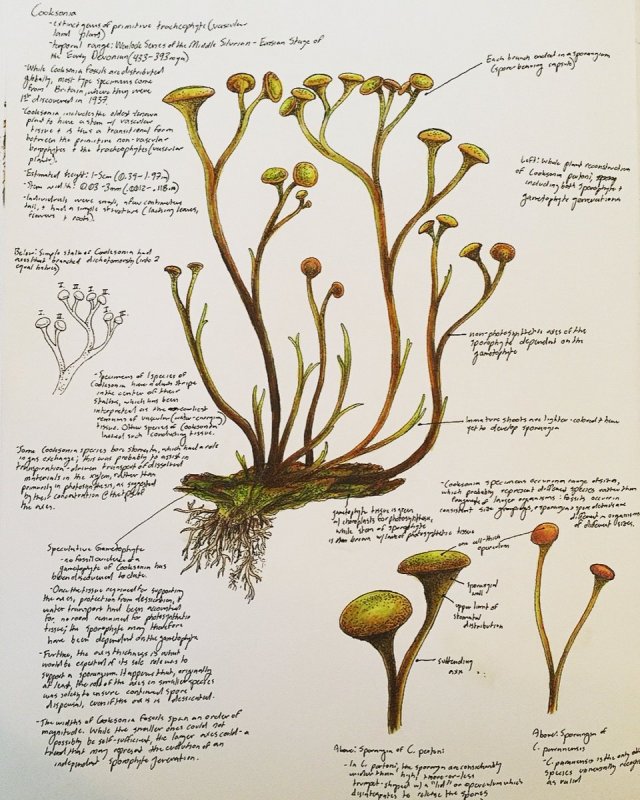 Cooksonia
-extinct genus of primitive tracheophyte (vascular
land plant)
-temporal range: Wenlock Series of the Middle Silurian - Emsian Stage of
the Early Devonian (433-393 mya)
-While Cooksonia fossils are distributed
globally, most type specimens come
from Britain, where they were
1st discovered in 1937.
-Cooksonia includes the oldest known
plant to have a stem w/ vascular
tissue & is thus a transitional form
between the primitive non-vascular
bryophytes & the tracheophytes (vascular
plants).
-Estimated height: 1-5cm (0.39-1.97in)
-Stem width: 0.03-3mm (.0012-.118in)
-Individuals were small, a few centimetres
tall, & had a simple structure (lacking leaves,
flowers & roots).
Each branch ended in a sporangium
(spore-bearing capsule)
Left: Whole plant reconstruction
of Cooksonia pertoni,
including both sporophyte &
gametophyte generations
Below: Simple stalk of Cooksonia had
axes that branched dichotomously (into 2
equal halves)
I. II. I. II. I. II.
-Specimens of 1 species of
Cooksonia have a dark stripe
in the center of their
stalks, which has been
interpreted as the earliest
remains of vascular (water-carrying)
tissue. Other species of Cooksonia
lacked such conducting tissue.
non-photosynthetic axes of the
sporophyte dependent on the
gametophyte
Immature shoots are lighter-colored & have
yet to develop sporangia
-Some Cooksonia species bore stomata, which had a role
in gas exchange; this was probably to assist in
transpiration-driven transport of dissolved
materials in the xylem, rather than
primarily in photosynthesis, as suggested
by their concentration @ the tips of
the axes.
gametophyte tissue is green
w/ chloroplasts for photosynthesis,
while stem of sporophyte
is brown w/ lack of photosynthetic tissue
-Cooksonia specimens occur in a range of sizes,
which probably represent different species rather than
fragments of larger organisms: fossils occur in
consistent size groupings, & sporangia & spore details are
different in organisms
of different sizes.
Speculative Gametophyte
-no fossil evidence of a
gametophyte of Cooksonia has
been discovered to date.
-Once the tissue required for supporting
the axes, protection from desiccation, &
water transport had been accounted
for, no room remained for photosynthetic
tissue; the sporophyte may therefore
have been dependent on the gametophyte
-Further, the axis thickness is what
would be expected if its sole role was to
support a sporangium. It appears that, originally
at least, the role of the axes in smaller species
was solely to ensure continued spore
dispersal, even if the axis is desiccated.
-The widths of Cooksonia fossils span an order of
magnitude. While the smaller ones could not
possibly be self-sufficient, the larger axes could - a
trend that may represent the evolution of an
independent sporophyte generation.
one cell-thick
operculum
sporangial
wall
upper limit of
stomatal
distribution
subtending
axis
Above: Sporangia of C. pertoni
-In C. pertoni, the sporangia are considerably
wider than high & more-or-less
trumpet-shaped w/ a "lid" or operculum which
disintegrates to release the spores
Above: Sporangia of
C. paranensis
-C. paranensis is the only other
species universally recognized
as valid